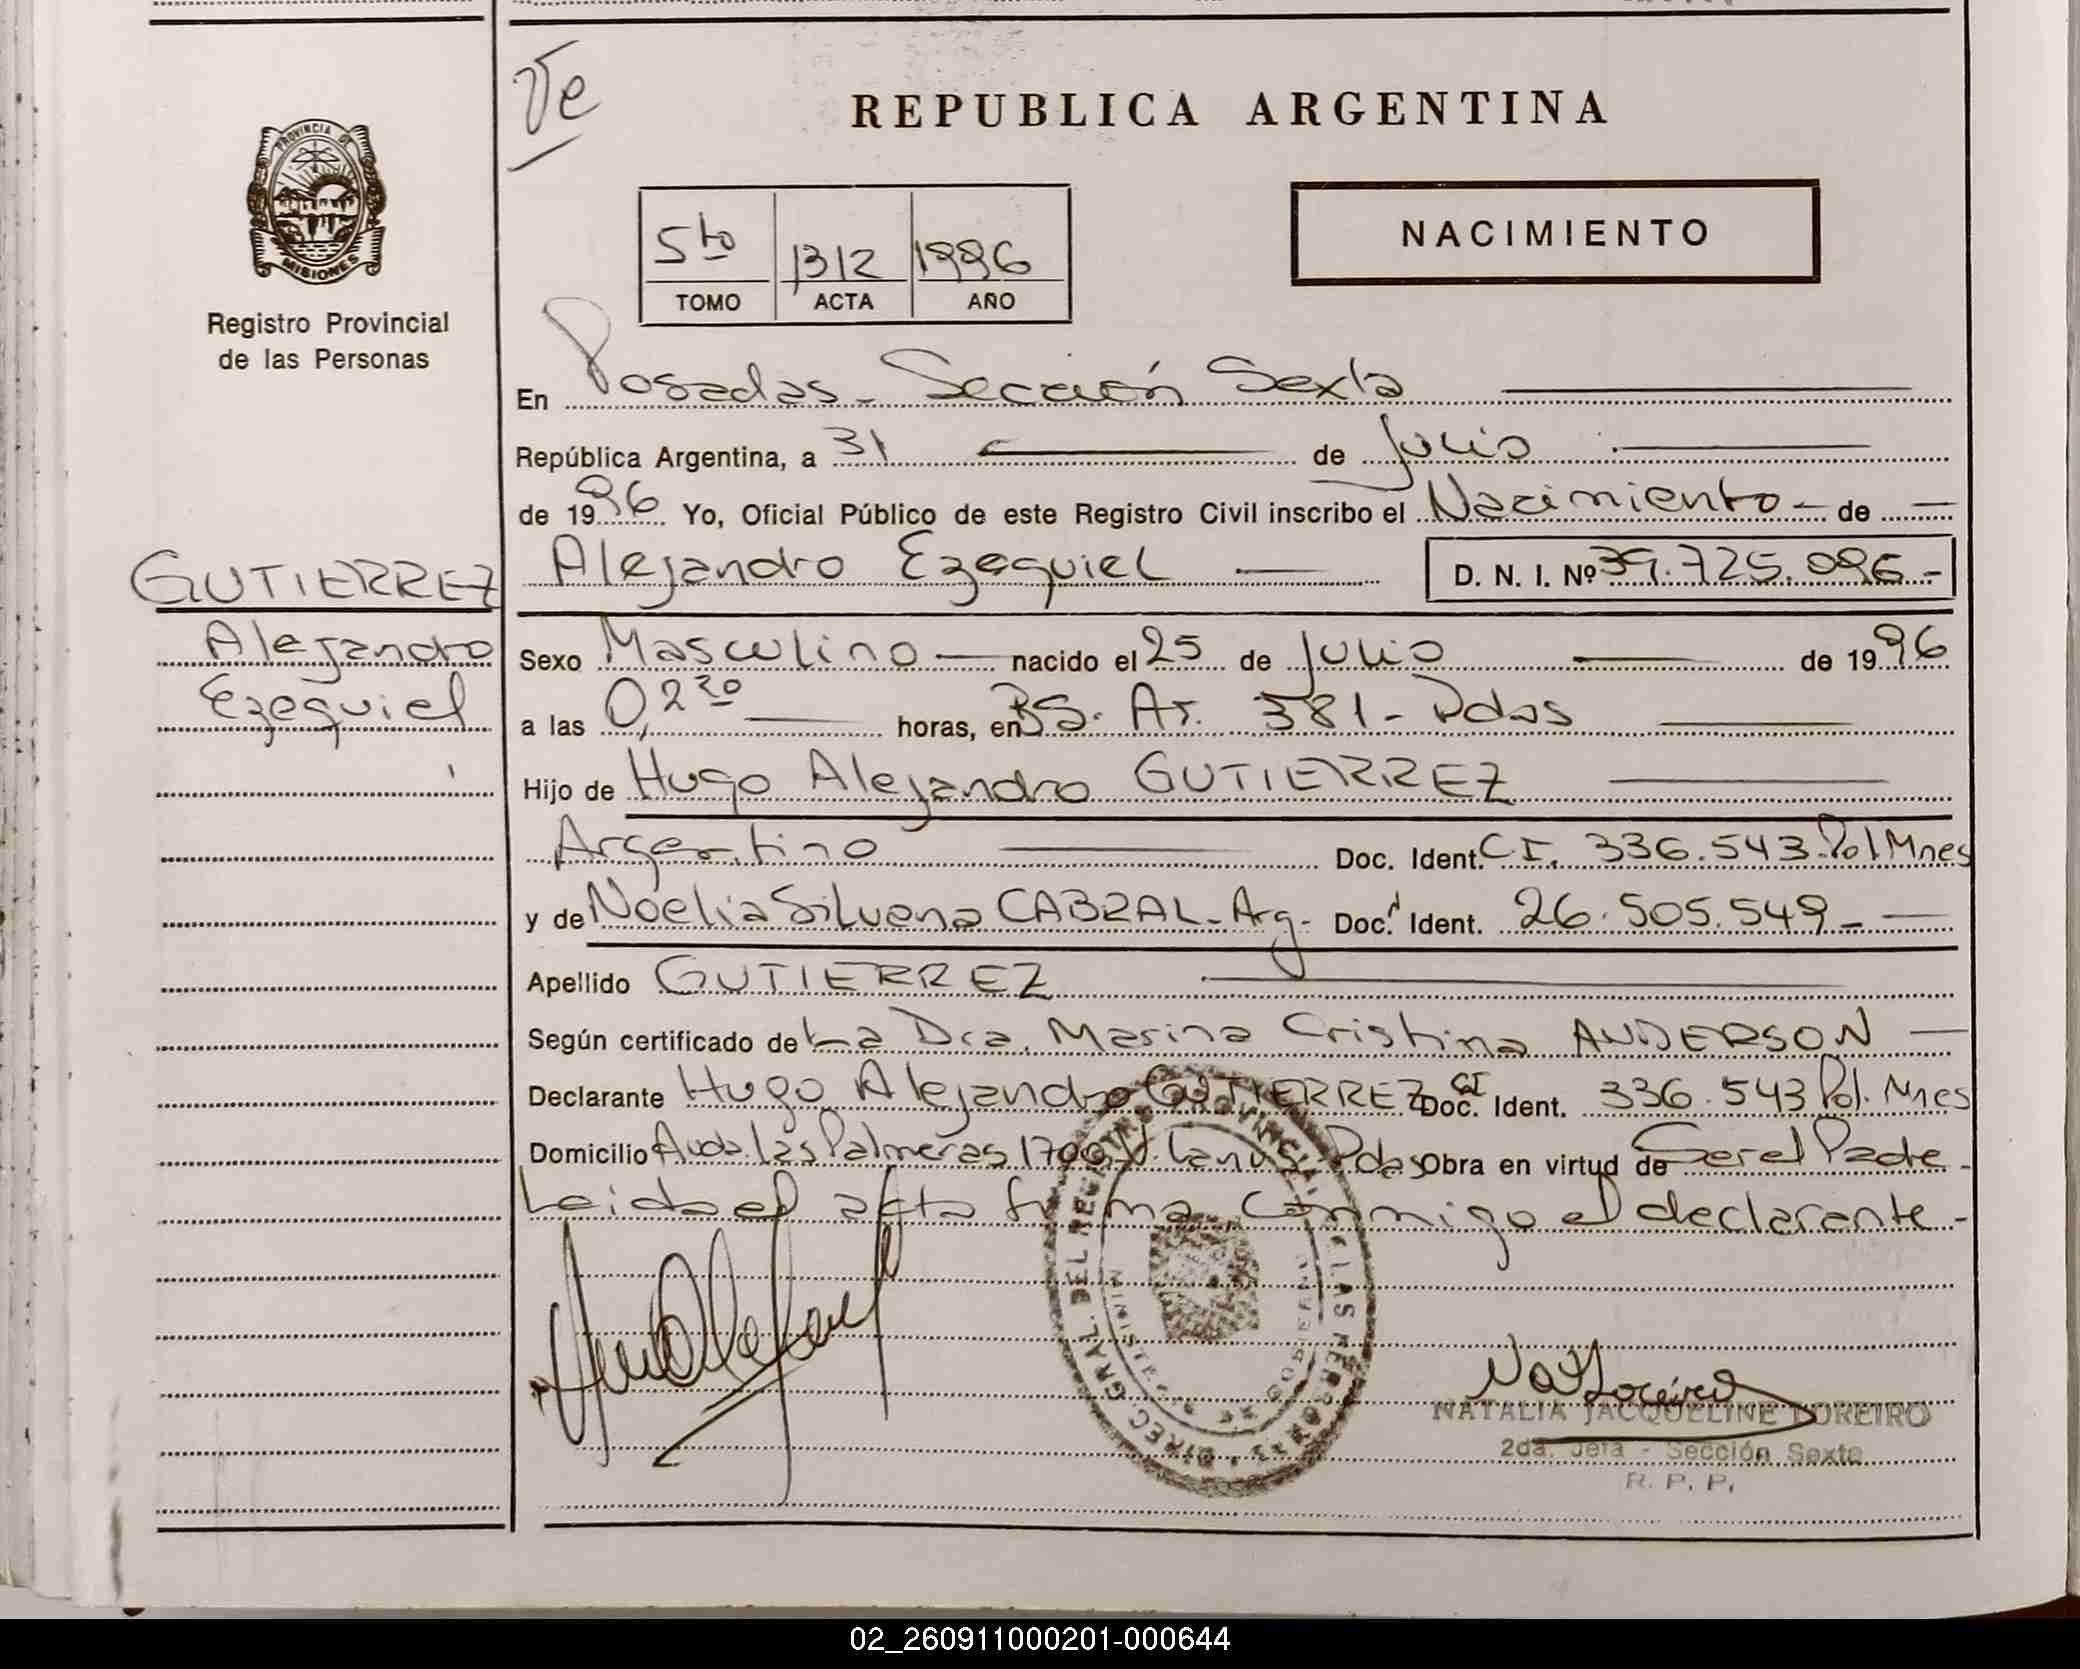 Ve
REPUBLICA ARGENTINA
PROVINCIA DE
MISIONES
Registro Provincial
de las Personas
5to 1312 1996
TOMO ACTA AÑO
NACIMIENTO
En Posadas - Sección Sexta
República Argentina, a 31 de Julio
de 1996 Yo, Oficial Público de este Registro Civil inscribo el Nacimiento - de
GUTIERREZ
Alejandro Ezequiel D. N. I. Nº 39.725.096.-
Alejandro
Sexo Masculino nacido el 25 de Julio de 1996
Ezequiel
a las 0,2 30 horas, en BS. As. 381 - Pdas
Hijo de Hugo Alejandro GUTIERREZ
Argentino Doc. Ident. CI. 336.543 Pol Mnes
y de Noelia Silvena CABRAL - Arg - Doc. Ident. 26.505.549 -
Apellido GUTIERREZ
Según certificado de La Dra. Marina Cristina ANDERSON
Declarante Hugo Alejandro GUTIERREZ Doc. CI Ident. 336.543 Pol. Mnes
Domicilio Avda. Las Palmeras 1700 V. Lanus - Pdas Obra en virtud de Ser el Padre -
Leida el acta firma conmigo el declarante -
DIREC GRAL. DEL REG. PROVINCIAL DE LAS PERSONAS
NATALIA JACQUELINE LOREIRO
2da. Jefa - Sección Sexta
R. P. P.
02_260911000201-000644